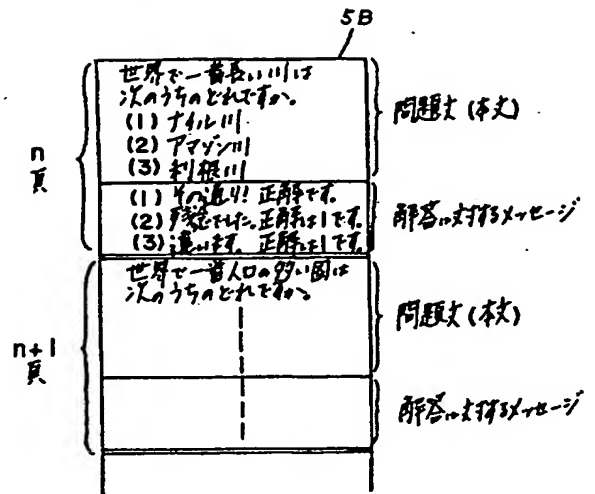 5B
n
頁
世界で一番長い川は
次のうちのどれですか。
(1) ナイル川
(2) アマゾン川
(3) 利根川
問題文(本文)
(1) その通り! 正解です。
(2) 残念でした。正解は1です。
(3) 違います。正解は1です。
解答に対するメッセージ
n+1
頁
世界で一番人口の多い国は
次のうちのどれですか。
問題文(本文)
解答に対するメッセージ